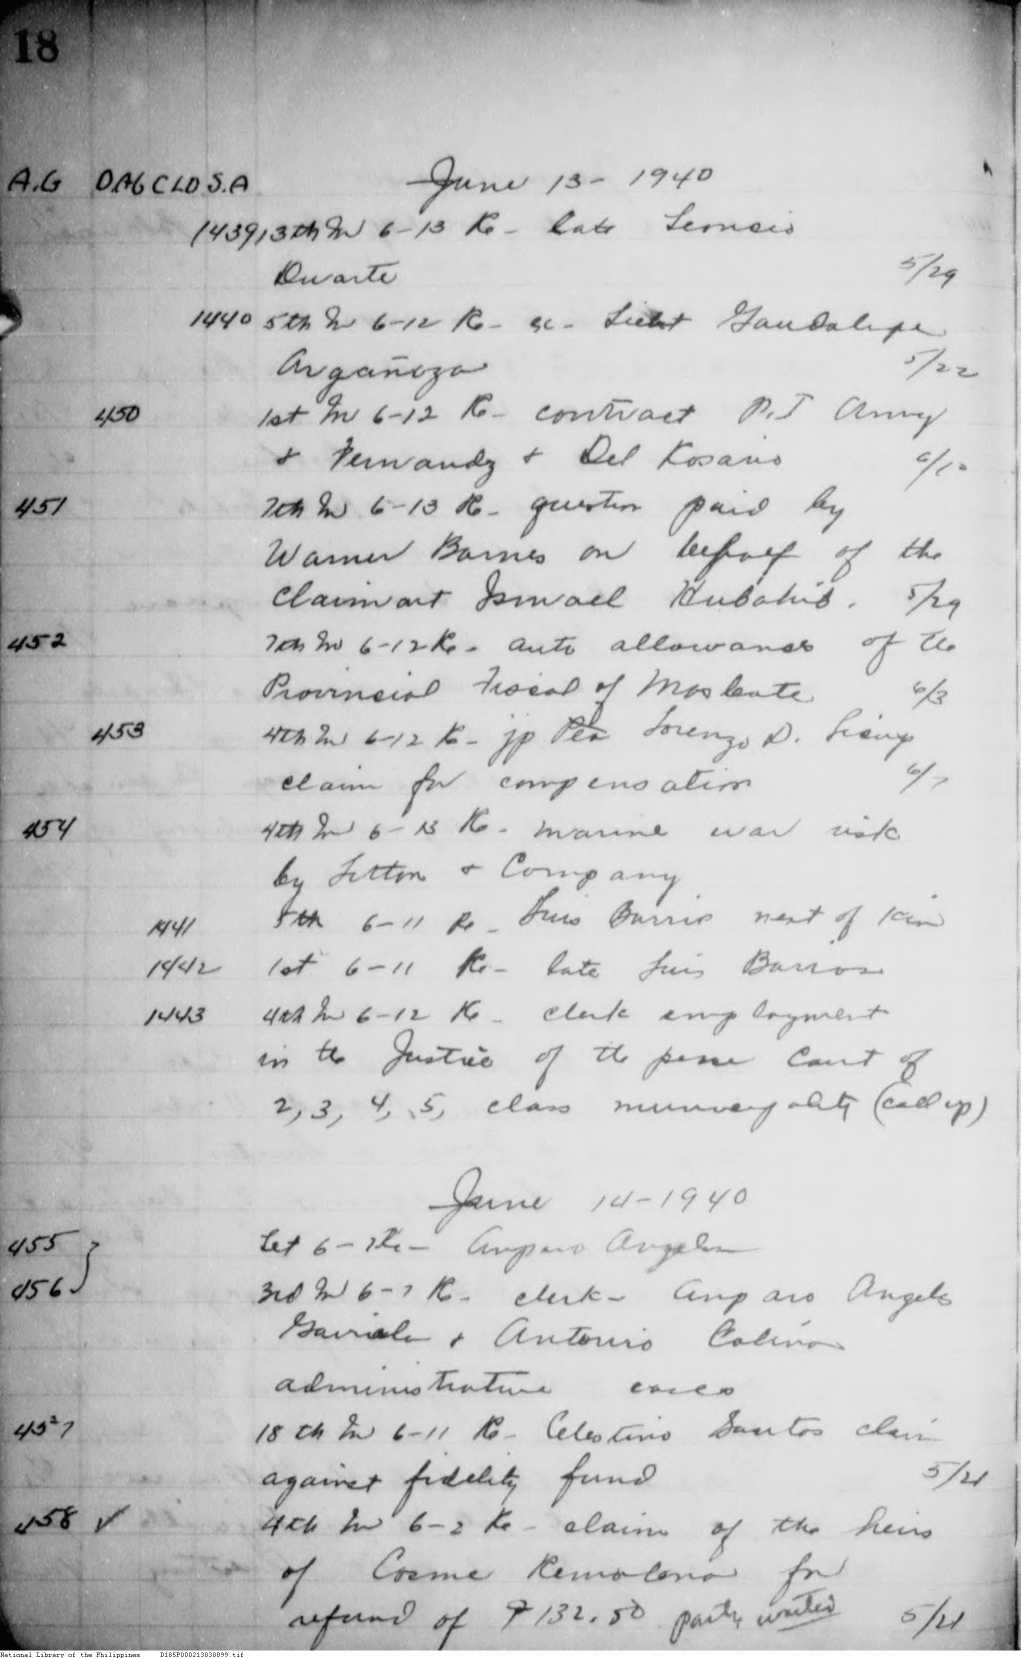 18
A.G O.A6 C L D S.A June 13 - 1940
1439 13th In 6-13 Re - late Leoncio
Duarte 5/29
1440 5th In 6-12 Re - sc - Lieut Gaudalupe
Argañoza 5/22
450 1st In 6-12 Re - contract P.I Army
& Fernandz & Del Rosario 6/10
451 7th In 6-13 Re - question paid by
Warner Barnes on behalf of the
claimant Ismael 5/29
452 7th In 6-12 Re - auto allowance of the
Provincial Fiscal of Masbate 6/3
453 4th In 6-12 Re - jp Lorenzo D.
claim for compensation 6/7
454 4th In 6-13 Re - marine war risk
by Litton & Company
1441 5th 6-11 Re - Luis Barrio next of kin
1442 1st 6-11 Re - late Luis Barrios
1443 4th In 6-12 Re - clerk employment
in the Justice of the peace Court of
2, 3, 4, 5, class (Call up)
June 14 - 1940
455 Let 6-7 Re - Amparo Angeles
456 3rd In 6-7 Re - clerk - Amparo Angeles
& Antonio
administrative cases
457 18th In 6-11 Re - Celestino Santos claim
against fidelity fund 5/21
458 ✓ 4th In 6-2 Re - claim of the heirs
of Cosme Remolona for
refund of ₱132.50 party 5/21
National Library of the Philippines D185P000213838099.tif